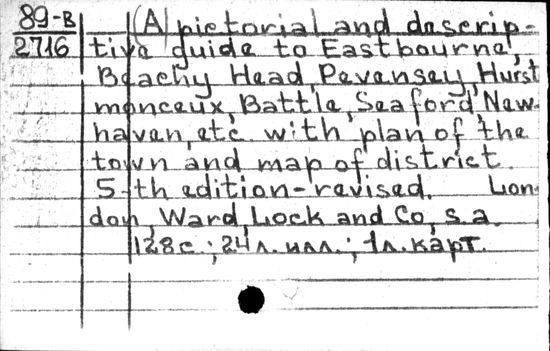 89-B (A) pictorial and descrip-
2716 tive guide to Eastbourne,
Beachy Head, Pevensey, Hurst
monceux, Battle, Seaford, New-
haven, etc. with plan of the
town and map of district.
5-th edition-revised. Lon-
don, Ward, Lock and Co, s.a.
128 с.; 24 л. илл.; 1 л. карт.